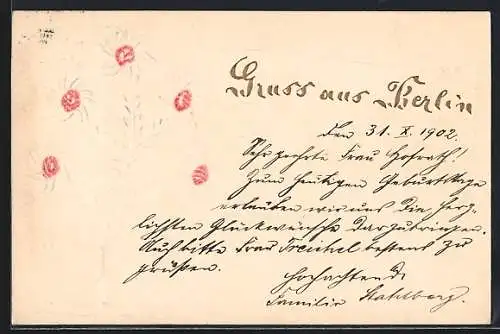 Gruss aus Berlin
Den 31. X. 1902.
Sehr geehrte Frau Hofrath!
Zum heutigen Geburtstage
erlauben wir uns die herz-
lichsten Glückwünsche darzubringen.
Auch bitte Frau Treichel bestens zu
grüßen.
Hochachtend
Familie Stahlberg.